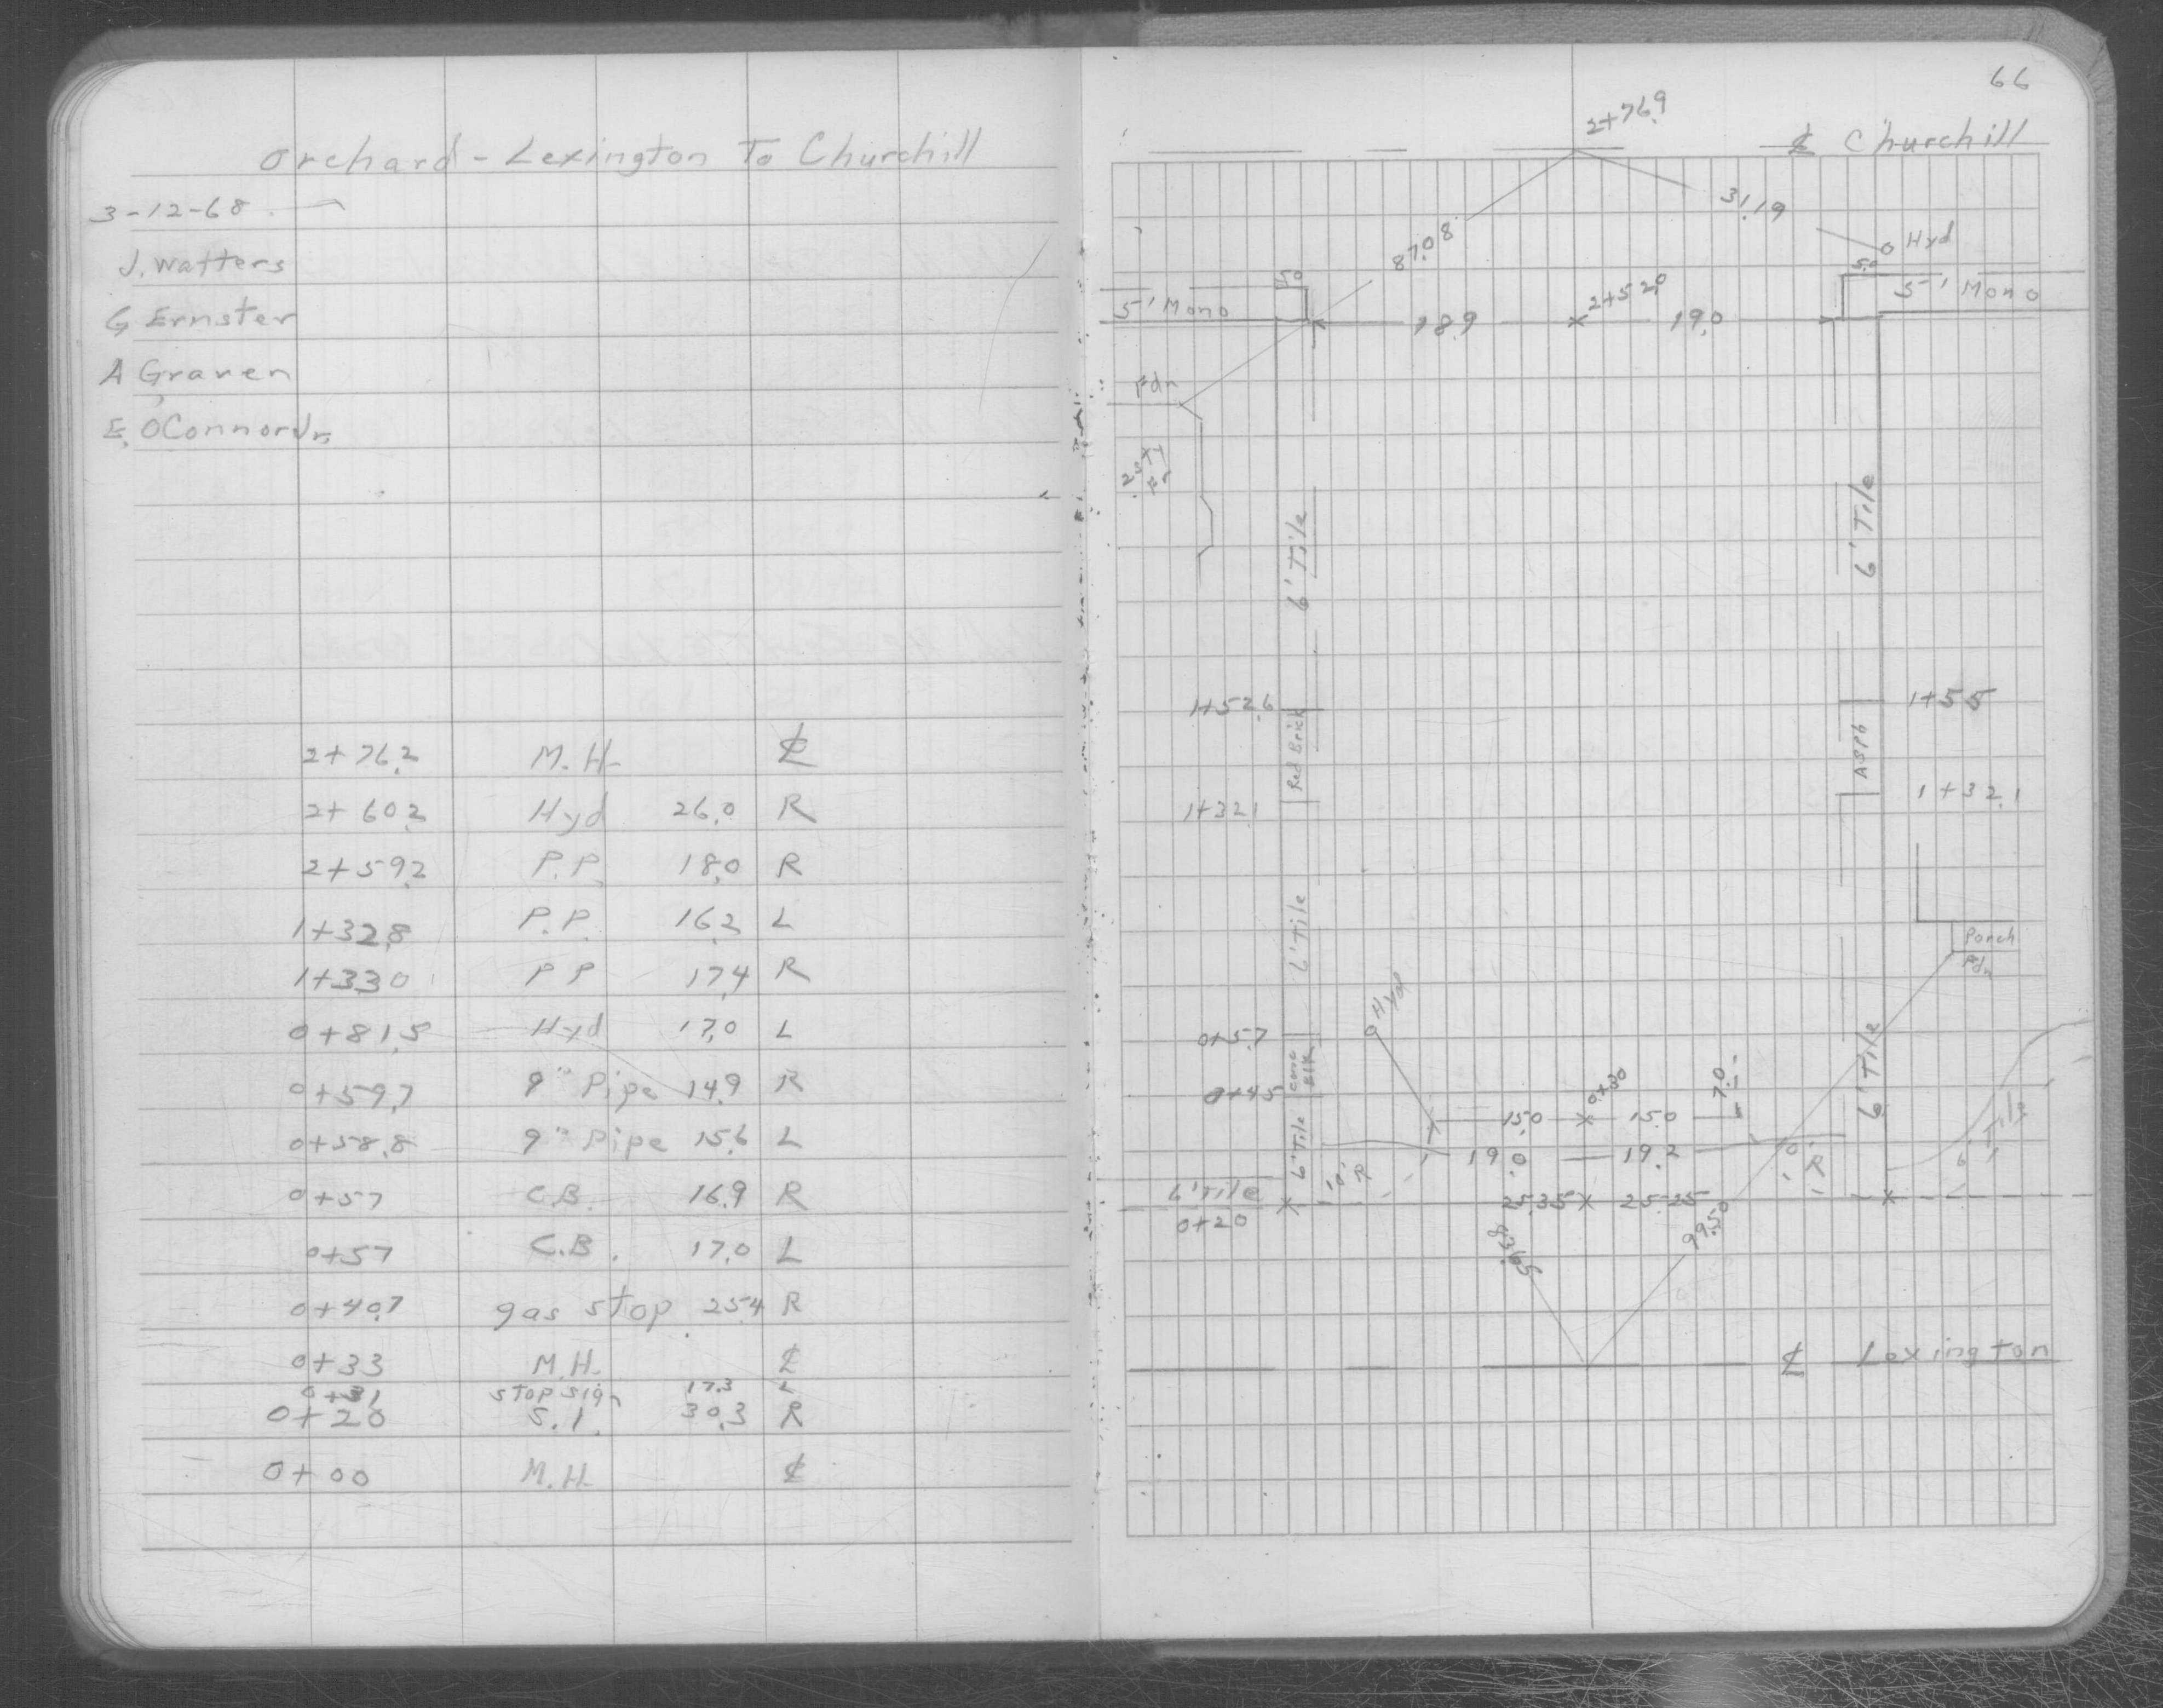 Orchard - Lexington To Churchill
3-12-68
J. Watters
G Ernster
A Graven
E. O'Connor Jr.
2+76.2 M.H. ℄
2+60.2 Hyd 26.0 R
2+59.2 P.P. 18.0 R
1+32.8 P.P. 16.2 L
1+33.0 P P 17.4 R
0+81.5 Hyd 17.0 L
0+59.7 9" Pipe 14.9 R
0+58.8 9" Pipe 15.6 L
0+57 C.B. 16.9 R
0+57 C.B. 17.0 L
0+40.7 gas stop 25.4 R
0+33 M.H. ℄
0+31 stop sign 17.3 L
0+20 S.I. 30.3 R
0+00 M.H. ℄
66
2+76.9
℄ Churchill
31.19
87.08
Hyd
5.0
5' Mono
5' Mono
2+52.0
18.9
19.0
Fdn
2 sty
Fr
6' Tile
6' Tile
1+52.6
1+55
Red Brick
Asph
1+32.1
1+32.1
6' Tile
Porch
Fdn
Hyd
0+57
conc
Blk
0+45
6' Tile
0+30
7.0
15.0
15.0
19.0
19.2
6' Tile
10' R
10' R
6' Tile
6' Tile
0+20
25.35
25.25
99.50
℄ Lexington